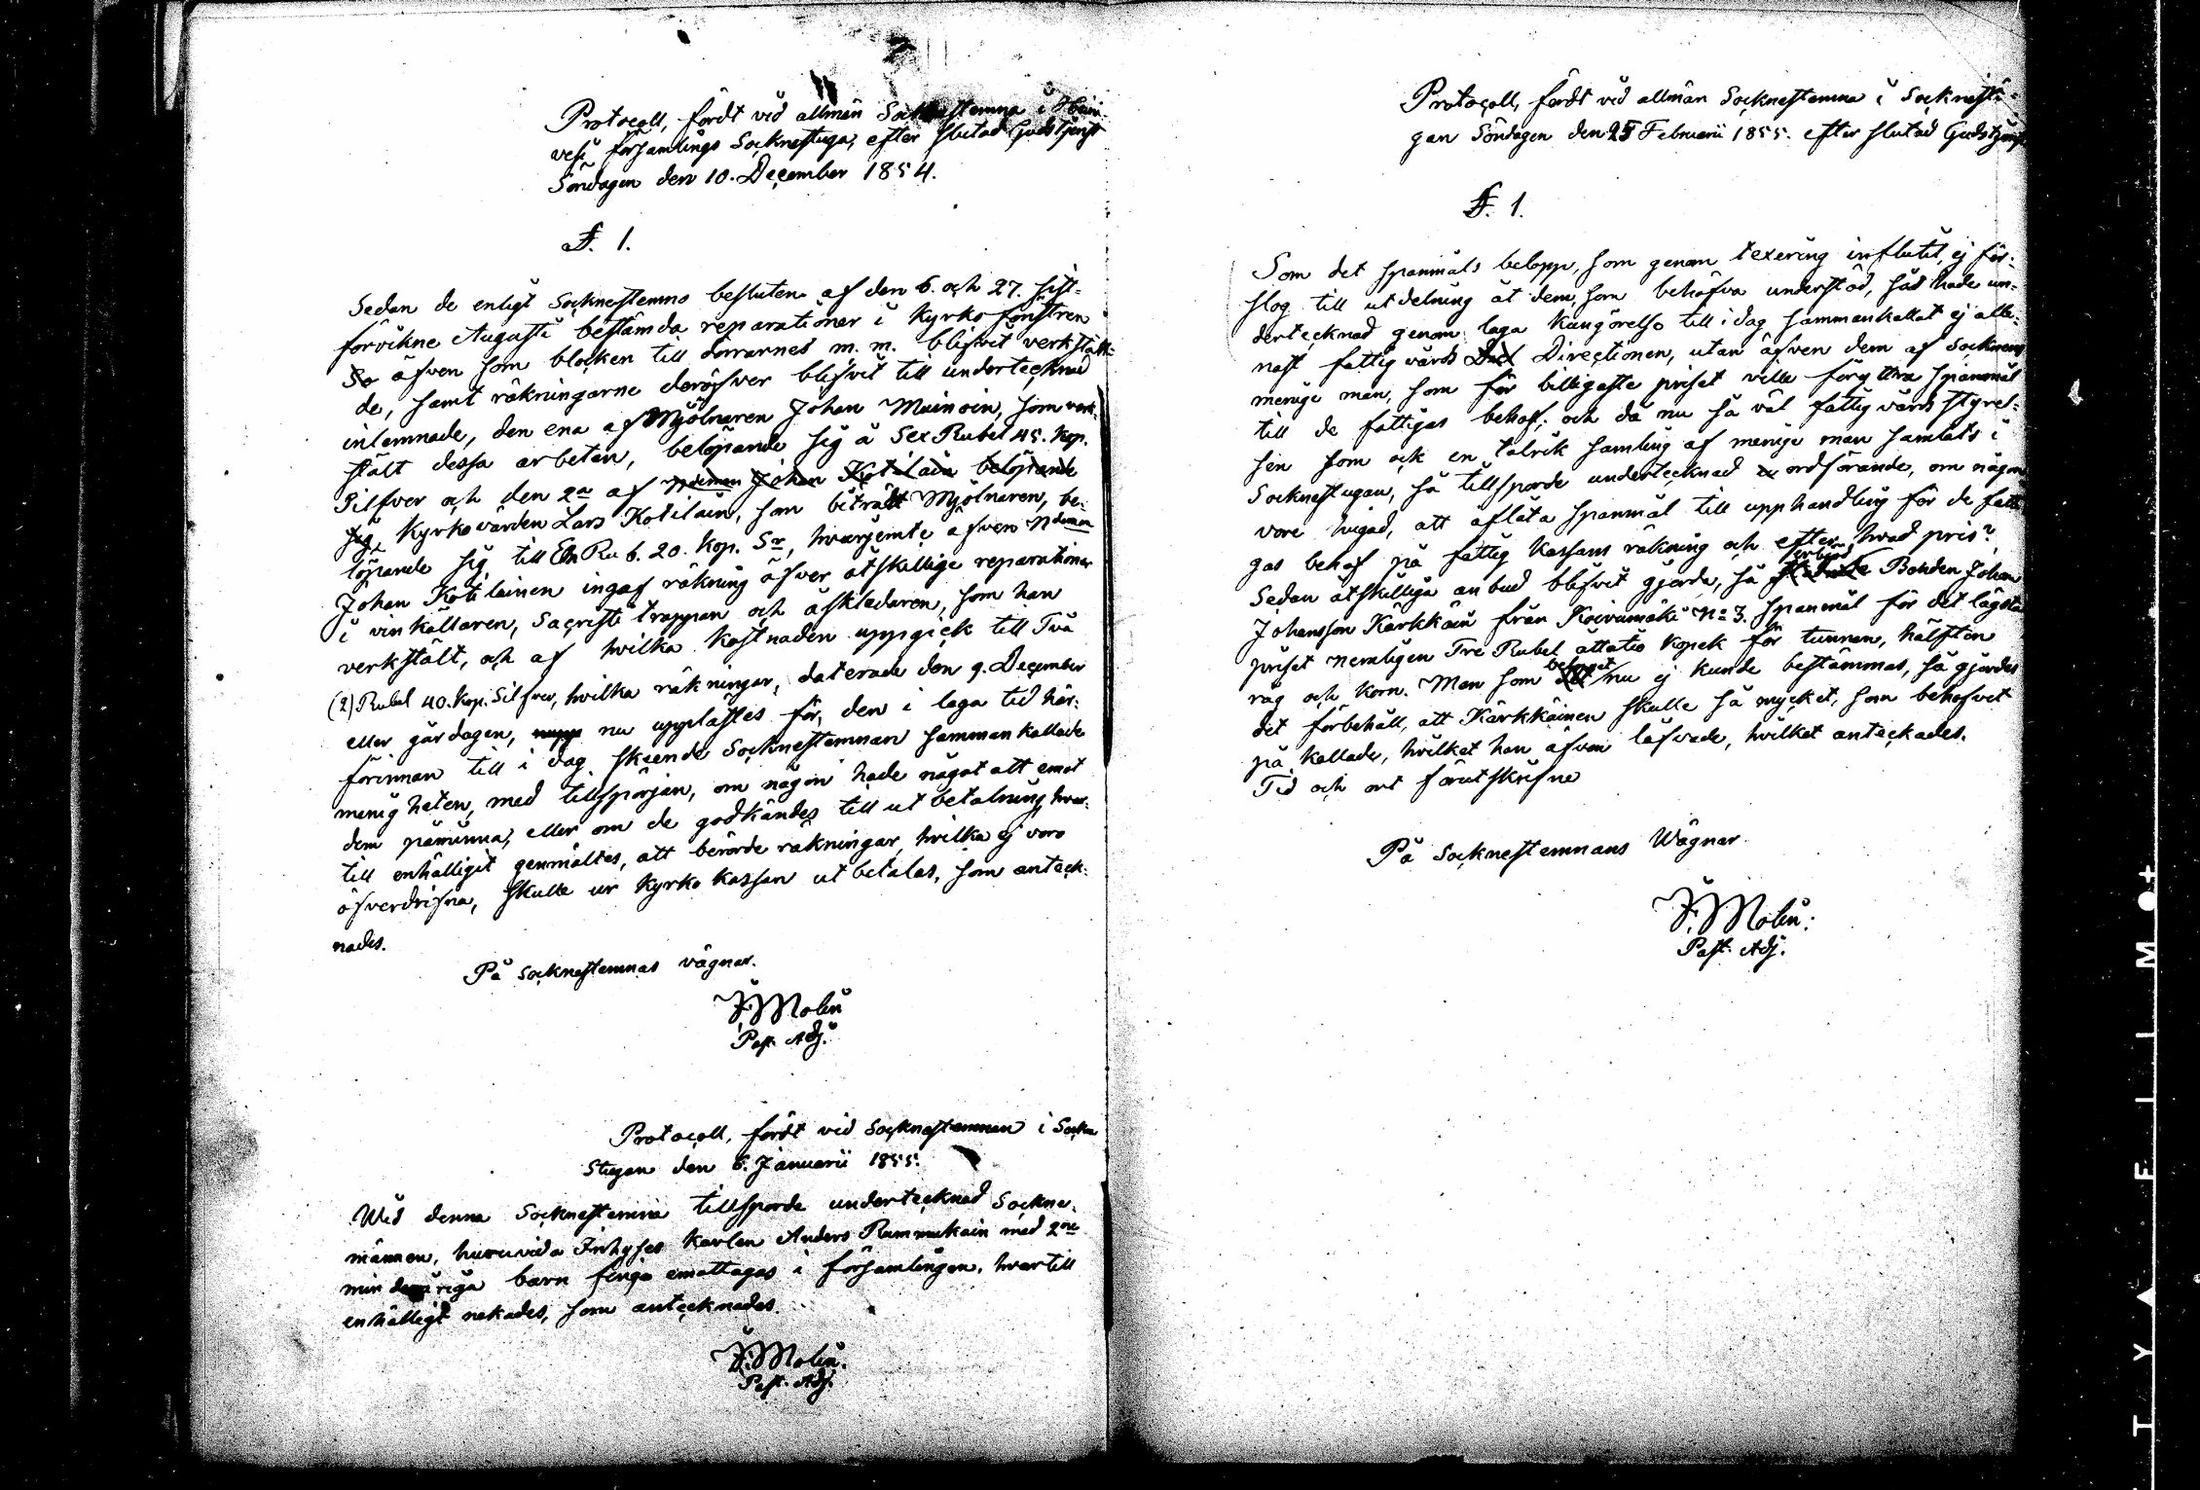 Protocoll, fördt vid allmän Socknestemna i Haukivesi
vesi församlings Socknestuga, efter slutad Gudstjenst
Söndagen den 10. December 1854.
§. 1.
Sedan de enligt Socknestemno besluten af den 6. och 27. sist-
förvikne Augusti bestämda reparationer i Kyrko fönstren
äfven som blocken till dörrarnes m. m. blifvit verkställ-
de, samt räkningarne deröfver blifvit till undertecknad
inlemnade, den ena af Mjölnaren Johan Muinoin, som verk-
stält dessa arbeten, belöpande sig à Sex Rubel 45. Kop.
Silfver och den 2a af Ndeman Johan Kotilain belöpande
sig Kyrkovärden Lars Kotilain, som biträdt Mjölnaren, be-
löpande sig till En Ru 6. 20. Kop. Sr, hvarjemte äfven Ndeman
Johan Kotilainen ingaf räkning öfver åtskillige reparationer
i vinkällaren, Sacristi trappan och åskledaren, som han
verkstält, och af hvilka kostnaden uppgick till Två
(2) Rubel 40. Kop. Silfver, hvilka räkningar, daterade den 9. December
eller gårdagen, nu upplästes för, den i laga tid här-
förinnan till i dag skeende Socknestemnan sammankallade
menigheten, med tillspörjan, om någon hade något att emot
dem påminna, eller om de godkändes till utbetalning, hvar-
till enhälligit genmältes, att berörde räkningar, hvilka ej voro
öfverdrifna, skulle ur Kyrko kassan utbetalas, som anteck-
nades.
På Socknestemnas vägnar.
J. Molin
Past. Adj.
Protocoll, fördt vid Socknestemnan i Sockne
Stugan den 6. Januarii 1855.
Wid denna Sockne­stemna tillsporde undertecknad Sockne-
männen, huruvida Inhyses Karlen Anders Rummukain med 2ne
minderåriga barn finge emottagas i församlingen, hvartill
enhälligt nekades, som antecknades.
J. Molin.
Past. Adj.
Protocoll, fördt vid allmän Sockne­stemna i Socknestu-
gan Söndagen den 25 Februarii 1855. efter slutad Gudstjenst
§. 1.
Som det spanmåls belopp, som genom taxering influtit, ej för-
slog till utdelning åt dem, som behöfva understöd, så hade un-
dertecknad genom laga kungörelse till i dag sammankallat ej alle-
nast fattigvårds Directionen, utan äfven dem af Socknens
menige man, som för billigaste priset ville föryttra spanmål
till de fattigas behof; och då nu så väl fattigvårds styrel-
sen som ock en talrik samling af menige man samlats i
Socknestugan, så tillsporde undertecknad ordförande, om någon
vore hugad, att aflåta spanmål till upphandling för de fatti-
gas behof på fattig Kassans räkning och efter hvad pris?
Sedan åtskilliga anbud blifvit gjorde, så erbjöd Bonden Johan
Johansson Kärkkäin från Koivumäki No 3. spanmål för det lägsta
priset nemligen Tre Rubel åttatio Kopek för tunnan, hälften
råg och korn. Men som beloppet nu ej kunde bestämmas, så gjordes
det förbehåll, att Kärkkäinen skulle så mycket, som behofvet
på kallade, hvilket han äfven läfvade, hvilket antecknades.
Tid och ort förutskrifne
På Sockne­stemnans Wägnar.
J. Molin.
Past. Adj.